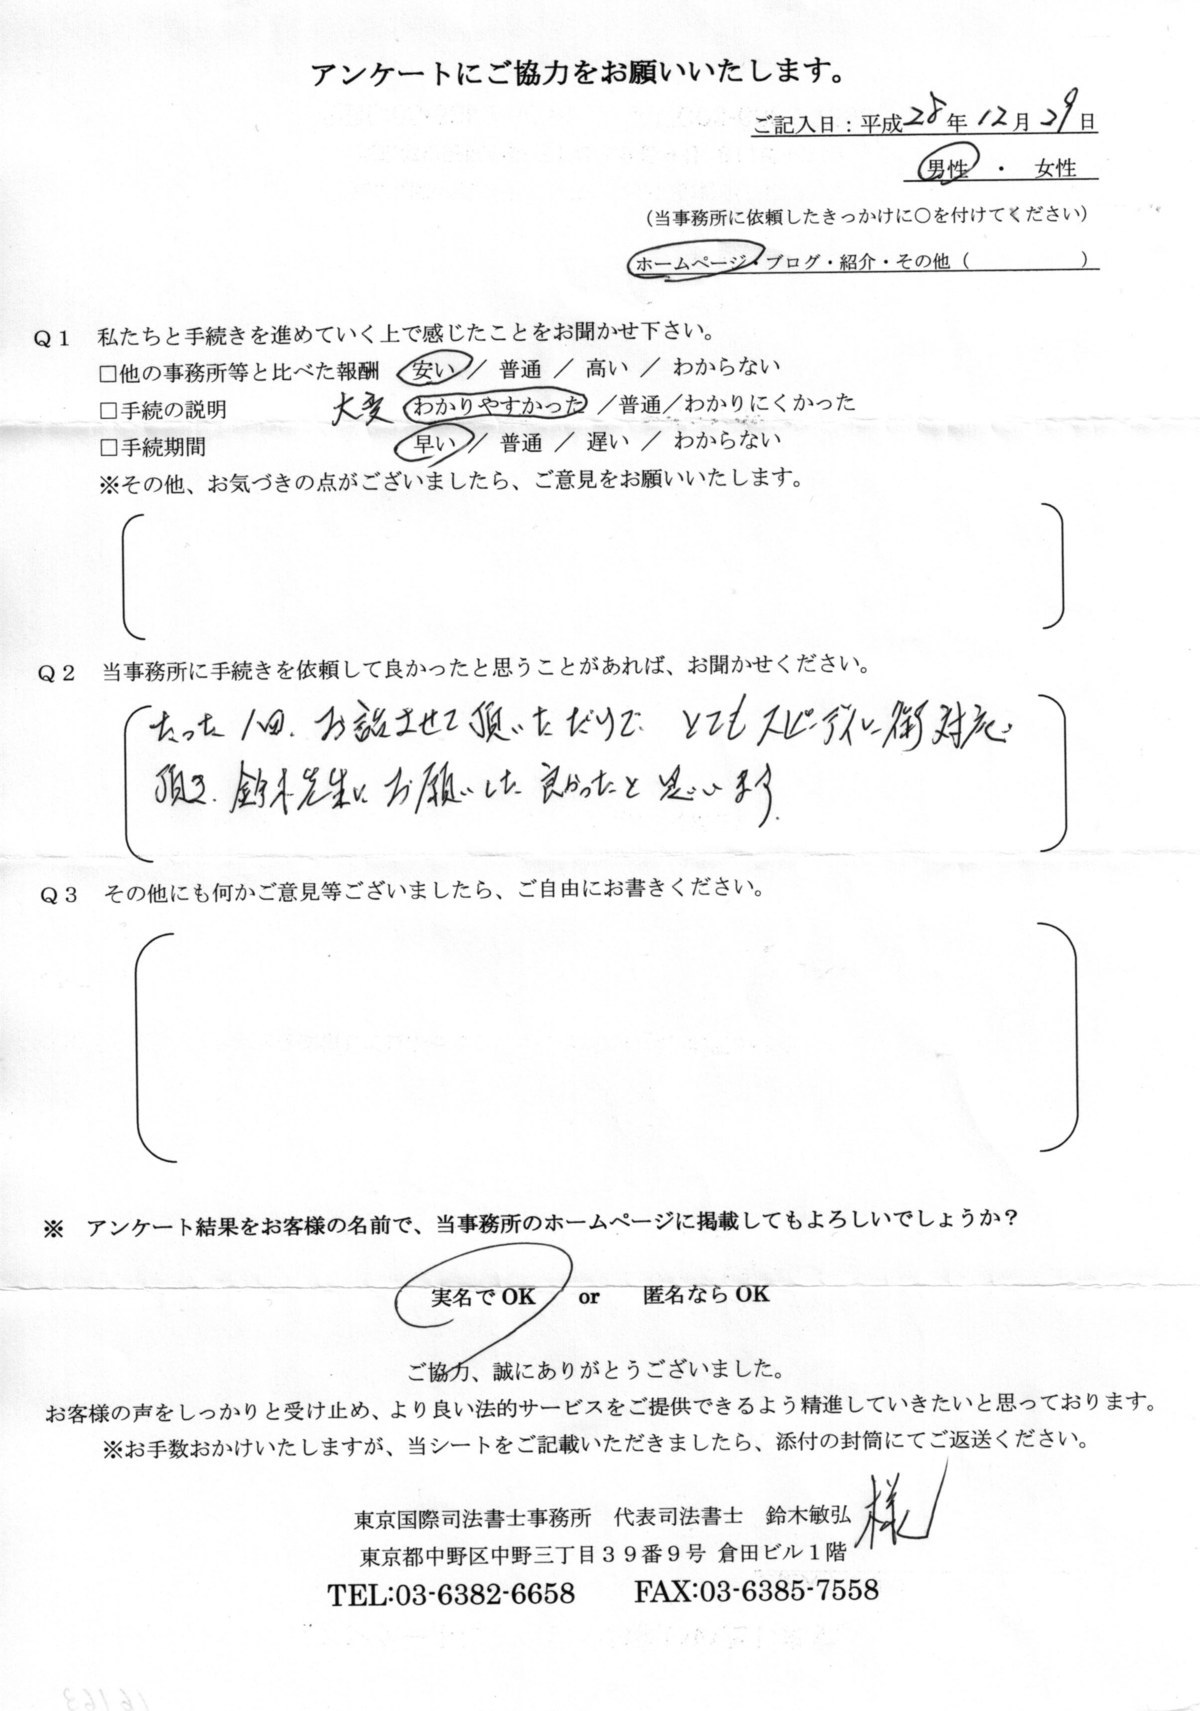 アンケートにご協力をお願いいたします。
ご記入日：平成28年12月29日
男性 ・ 女性
（当事務所に依頼したきっかけに〇を付けてください）
ホームページ・ブログ・紹介・その他（ ）
Q1 私たちと手続きを進めていく上で感じたことをお聞かせ下さい。
□他の事務所等と比べた報酬 安い ／ 普通 ／ 高い ／ わからない
□手続の説明 大変 わかりやすかった ／普通／わかりにくかった
□手続期間 早い ／ 普通 ／ 遅い ／ わからない
※その他、お気づきの点がございましたら、ご意見をお願いいたします。
Q2 当事務所に手続きを依頼して良かったと思うことがあれば、お聞かせください。
たった1回、お話させて頂いただけで とてもスピーディに 対応
頂き、鈴木先生に お願いした 良かったと 思います。
Q3 その他にも何かご意見等ございましたら、ご自由にお書きください。
※ アンケート結果をお客様の名前で、当事務所のホームページに掲載してもよろしいでしょうか？
実名でOK or 匿名ならOK
ご協力、誠にありがとうございました。
お客様の声をしっかりと受け止め、より良い法的サービスをご提供できるよう精進していきたいと思っております。
※お手数おかけいたしますが、当シートをご記載いただきましたら、添付の封筒にてご返送ください。
東京国際司法書士事務所 代表司法書士 鈴木敏弘 様
東京都中野区中野三丁目39番9号 倉田ビル1階
TEL:03-6382-6658 FAX:03-6385-7558